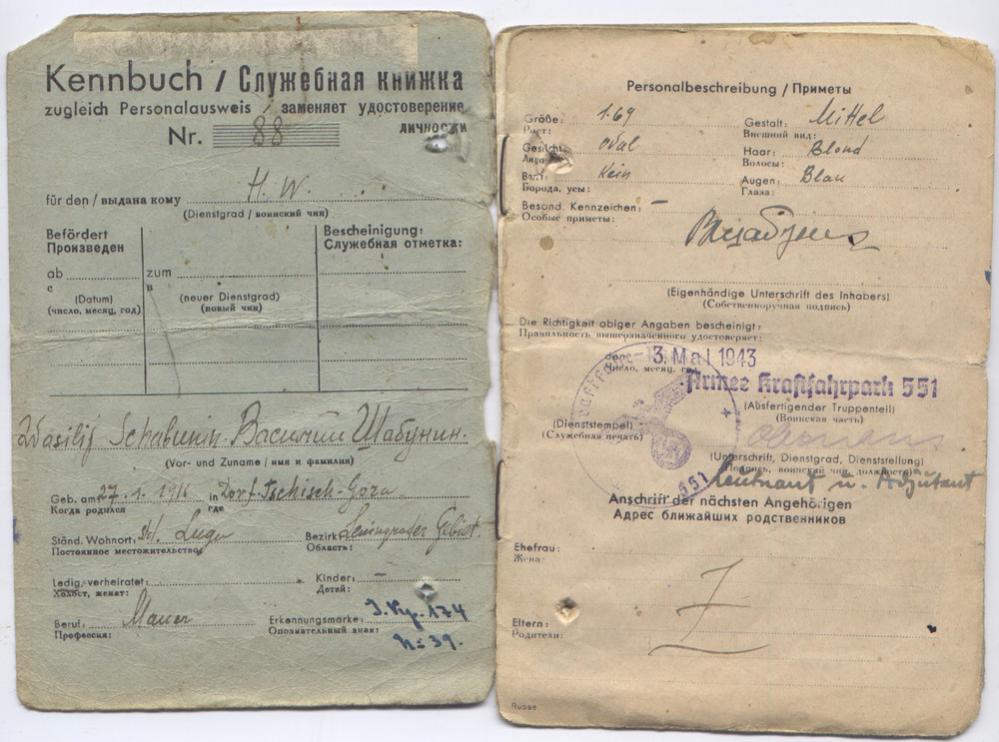 Kennbuch / Служебная книжка
zugleich Personalausweis / заменяет удостоверение
Nr. 88 личности
H. W.
für den / выдана кому
(Dienstgrad / воинский чин)
Befördert
Произведен
Bescheinigung:
Служебная отметка:
ab zum
с в
(Datum) (neuer Dienstgrad)
(число, месяц, год) (новый чин)
Wasilij Schabunin Василий Шабунин.
(Vor- und Zuname / имя и фамилия)
Geb. am: 27.1.1916 in Dorf-Tschisch-Gora
Когда родился где
Ständ. Wohnort: St. Luga Bezirk: Leningrader Gebiet.
Постоянное местожительство: Область:
Ledig, verheiratet: Kinder: –
Холост, женат: Детей:
Beruf: Maurer Erkennungsmarke: 174
Профессия: Опознавательный знак: № 39.
Personalbeschreibung / Приметы
Größe: 169 Gestalt: Mittel
Рост: Внешний вид:
Gesicht: oval Haar: Blond
Лицо: Волосы:
Bart: Kein Augen: Blau
Борода, усы: Глаза:
Besond. Kennzeichen: –
Особые приметы:
(Eigenhändige Unterschrift des Inhabers)
(Собственноручная подпись)
Die Richtigkeit obiger Angaben bescheinigt:
Правильность вышеуказанного удостоверяет:
den –3. Mai 1943
Число, месяц, год
Armee Kraftfahrpark 551
(Ausfertigender Truppenteil)
(Воинская часть)
(Dienststempel)
(Служебная печать)
(Unterschrift, Dienstgrad, Dienststellung)
(Подпись, воинский чин, должность)
551 Leutnant u. Adjutant
Anschrift der nächsten Angehörigen
Адрес ближайших родственников
Ehefrau:
Жена:
Eltern:
Родители:
Russe